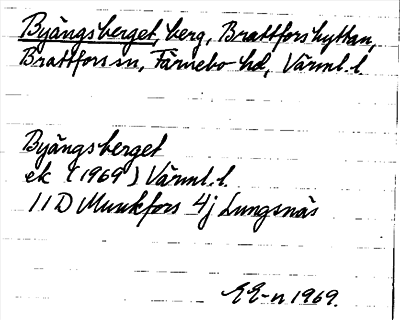 Byängsberget, berg, Brattforshyttan,
Brattfors sn, Färnebo hd, Värml. l.
Byängsberget
ek (1969) Värml. l.
11D Munkfors 4j Lungsnäs
EE-n 1969.